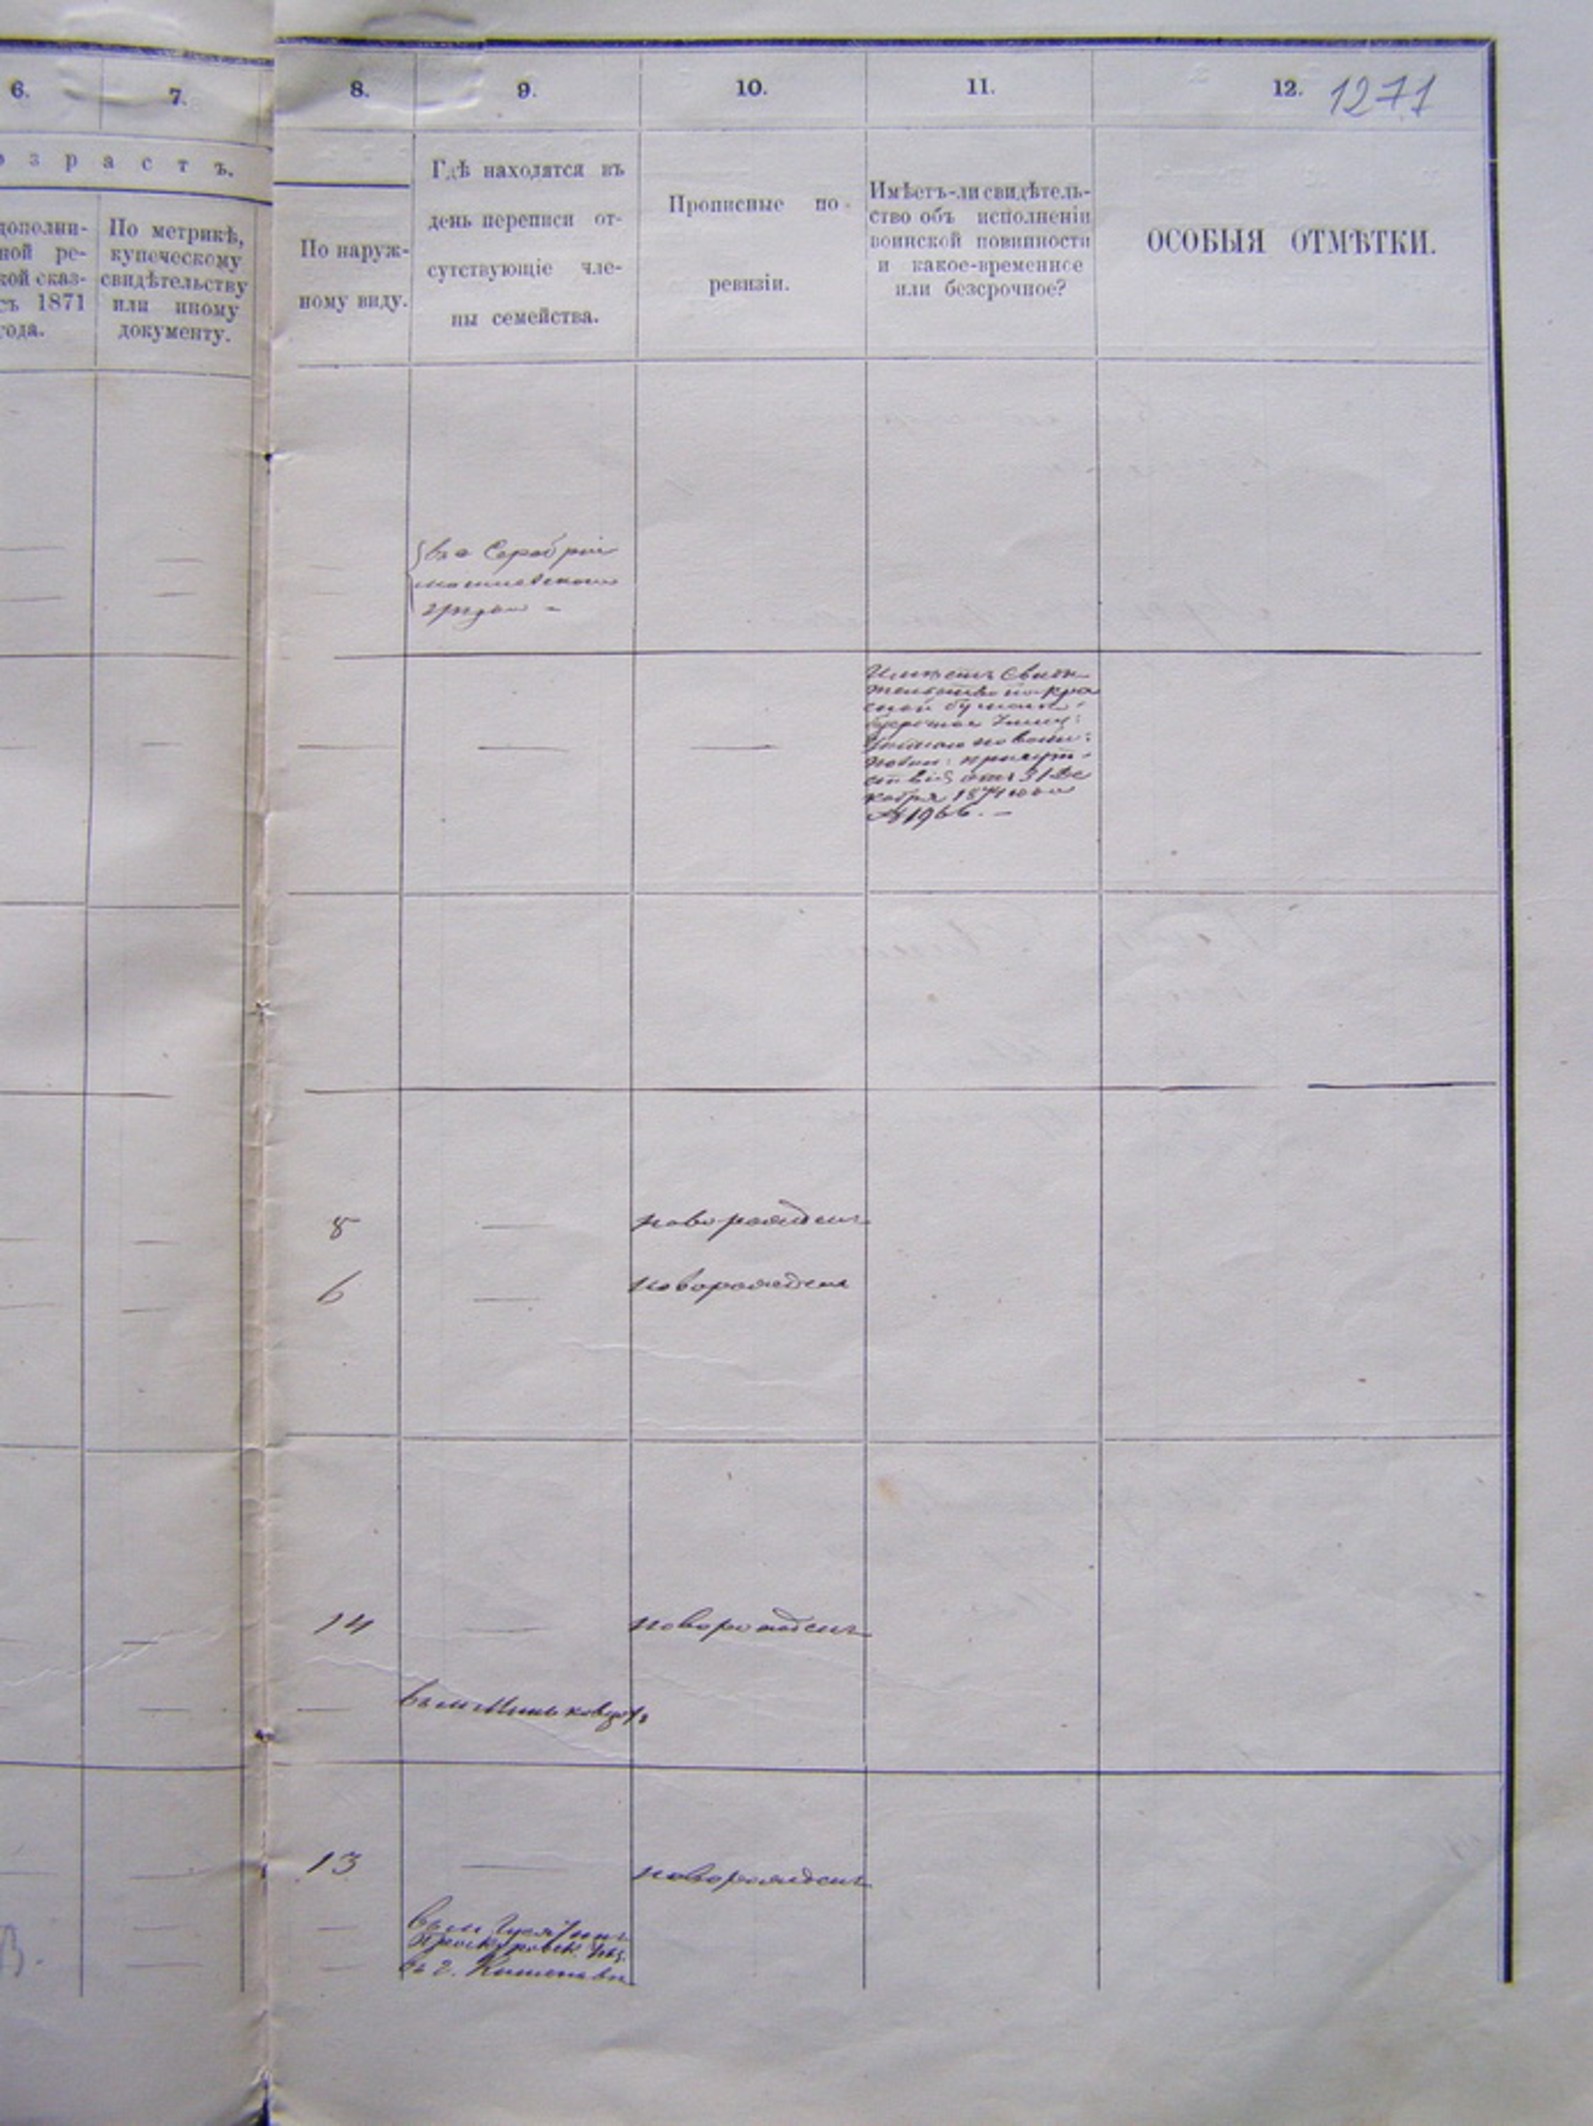 6.
7.
8.
9.
10.
11.
12.
1271
о з р а с т ъ.
дополни-
ной ре-
кой сказ-
съ 1871
года.
По метрикѣ,
купеческому
свидѣтельству
или иному
документу.
По наруж-
ному виду.
Гдѣ находятся въ
день переписи от-
сутствующіе чле-
ны семейства.
Прописные по
ревизіи.
Имѣетъ-ли свидѣтель-
ство объ исполненіи
воинской повинности
и какое-временное
или безсрочное?
ОСОБЫЯ ОТМѢТКИ.
Имѣетъ Свидѣ
тельство
отъ 31 Де
кабря 1874 года
№ 1966. —
8
новорожденъ
6
новорожденъ
14
новорожденъ
въ м Миньковцахъ
13
новорожденъ
въ м
Проскуровск. уѣз.
въ г. Кишеневѣ